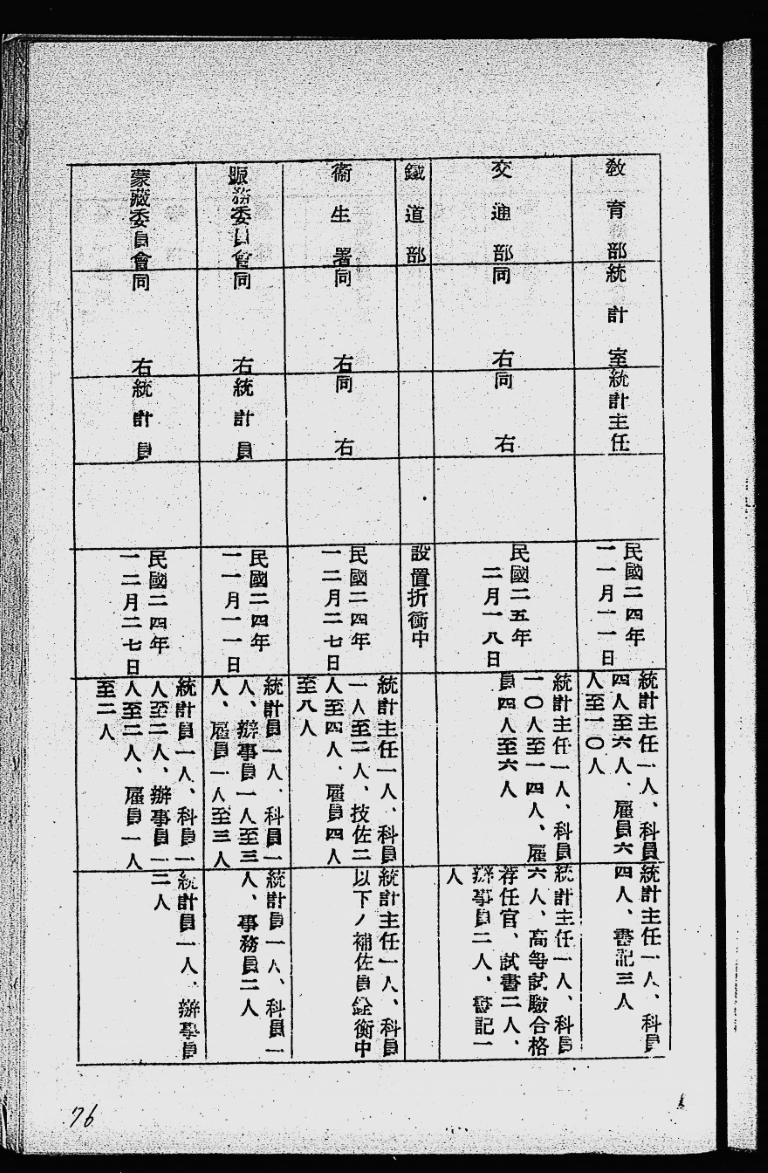 教育部
統計室
統計主任
民國二四年
一一月一一日
統計主任一人、科員
四人至六人、雇員六
人至一〇人
統計主任一人、科員
四人、書記三人
交通部
同右
同右
民國二五年
二月一八日
統計主任一人、科員
一〇人至一四人、雇
員四人至六人
統計主任一人、科員
六人、高等試驗合格
荐任官、試署二人、
辦事員二人、書記一
人
鐵道部
設置折衝中
衞生署
同右
同右
民國二四年
一二月二七日
統計主任一人、科員
一人至二人、技佐二
人至四人、雇員四人
至八人
統計主任一人、科員
以下ノ補佐員銓衡中
賑務委員會
同右
統計員
民國二四年
一一月一一日
統計員一人、科員一
人、辦事員一人至三
人、雇員一人至三人
統計員一人、科員一
人、事務員二人
蒙藏委員會
同右
統計員
民國二四年
一二月二七日
統計員一人、科員一
人至二人、辦事員一
人至二人、雇員一人
至二人
統計員一人、辦事員
二人
76